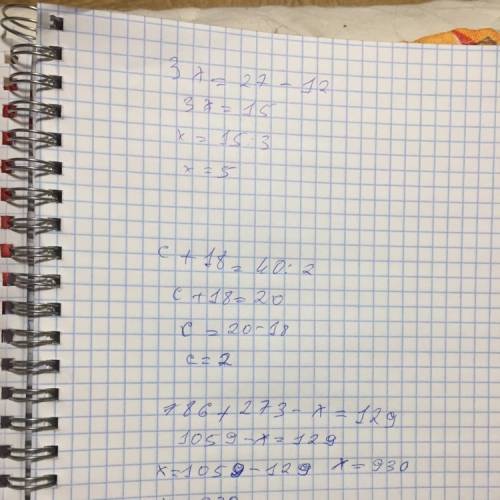 3x = 27 - 12
3x = 15
x = 15:3
x = 5
c + 18 = 40:2
c + 18 = 20
c = 20 - 18
c = 2
786 + 273 - x = 129
1059 - x = 129
x = 1059 - 129 x = 930